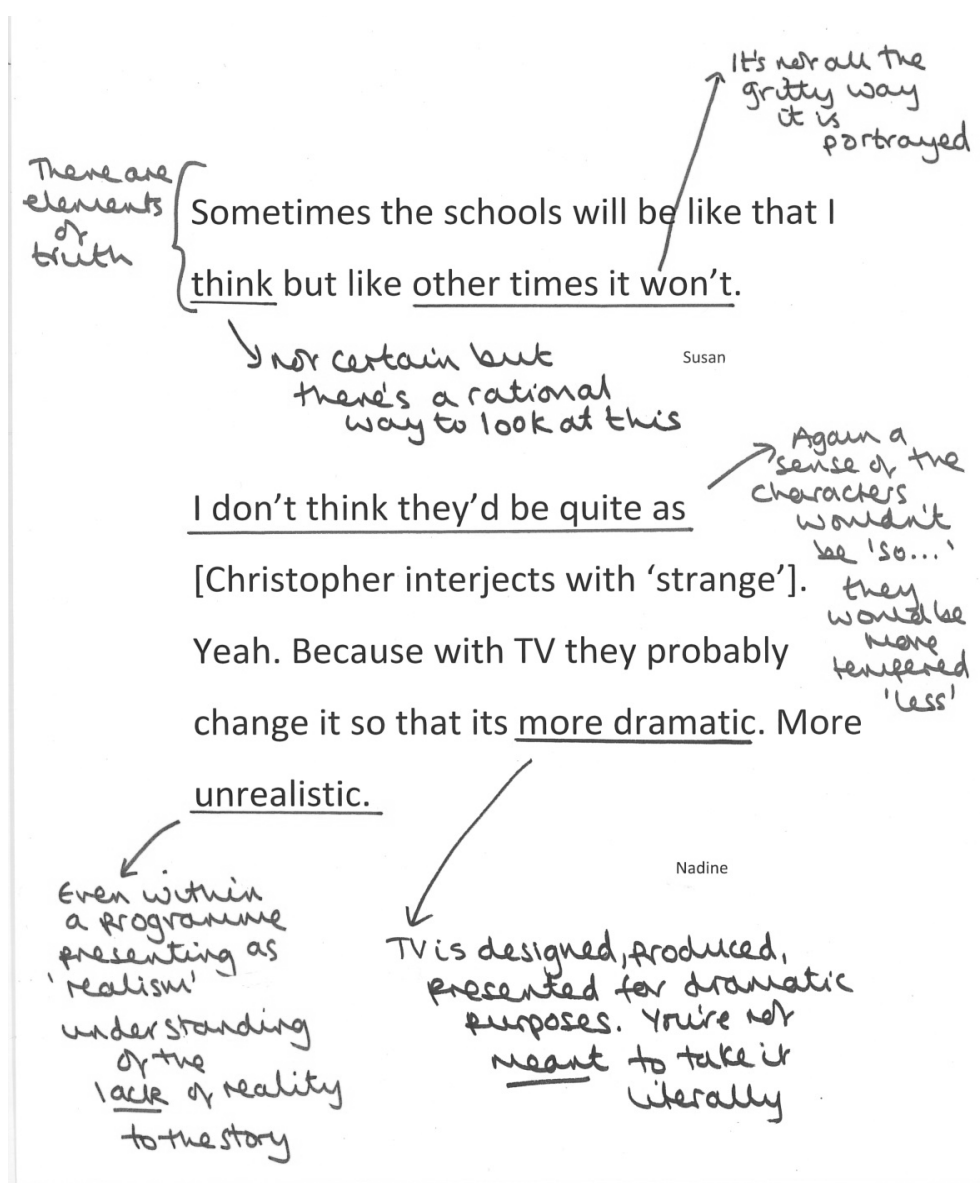 It's not all the
gritty way
it is
portrayed
There are
elements
of
truth
Sometimes the schools will be like that I
think but like other times it won't.
Susan
not certain but
there's a rational
way to look at this
Again a
sense of the
characters
wouldn't
be 'so...'
they
would be
more
tempered
'less'
I don't think they'd be quite as
[Christopher interjects with 'strange'].
Yeah. Because with TV they probably
change it so that its more dramatic. More
unrealistic.
Nadine
Even within
a programme
presenting as
'realism'
understanding
of the
lack of reality
to the story
TV is designed, produced,
presented for dramatic
purposes. You're not
meant to take it
literally